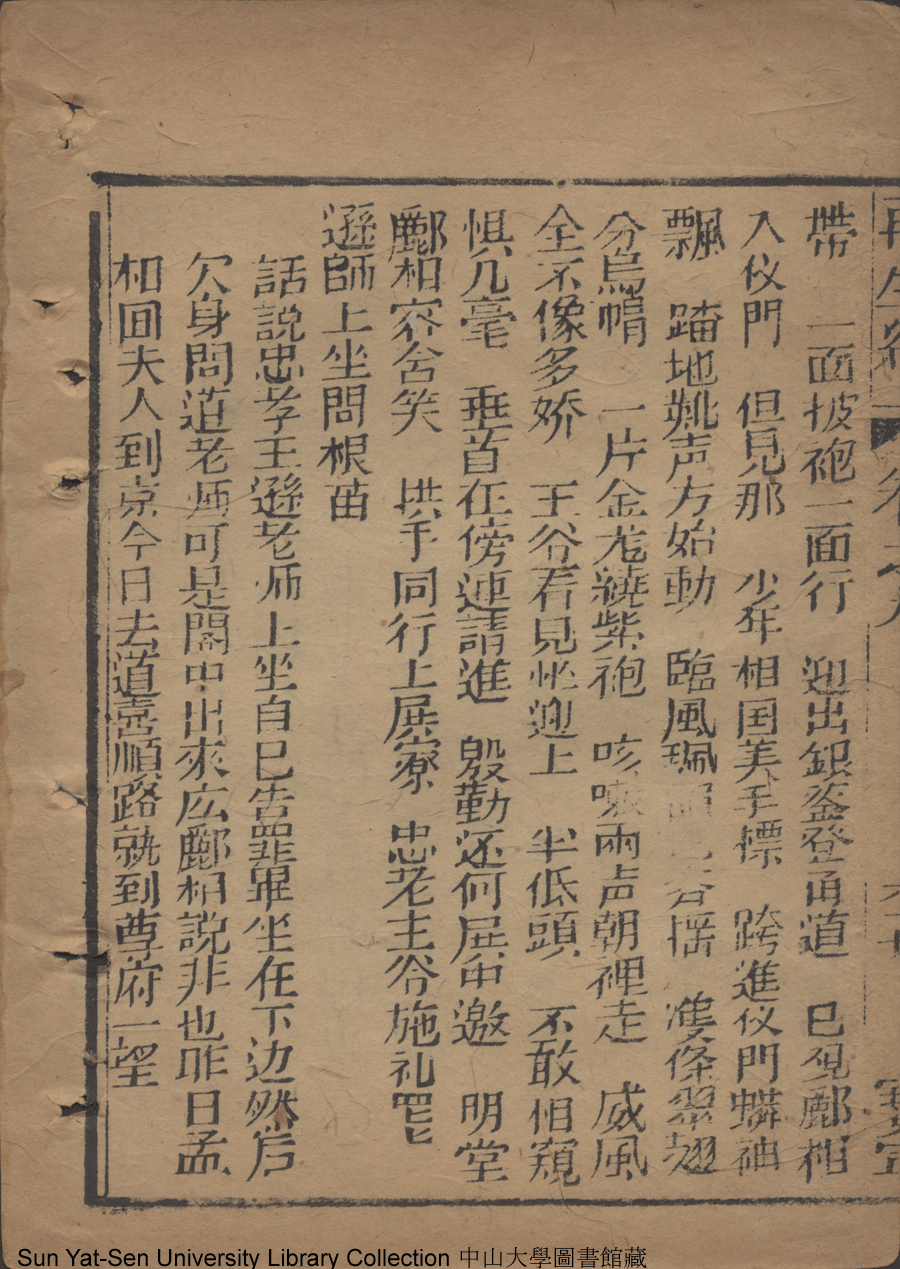 再生緣
帶　一面披袍一面行　迎出銀鑾登甬道　已見酈相
入仪門　但見那　少年相国美丰標　跨進仪門蟒袖
飄　踏地靴声方始動　臨風珮　摇　雙條翠翅
分烏帽　一片金龙繞紫袍　咳嗽兩声朝裡走　威風
全不像多娇　王谷看見忙迎上　半低頭　不敢相窺
惧几毫　垂首在傍連請進　殷勤还何屈中邀　明堂
酈相容含笑　拱手同行上屈寮　忠老王谷施礼罢
遜師上坐問根苗
話說忠孝王遜老师上坐自已告罪畢坐在下边然后
欠身問道老师可是閣中出來広酈相說非也昨日孟
相囬夫人到京今日去道喜順路就到尊府一望
Sun Yat-Sen University Library Collection 中山大學圖書館藏